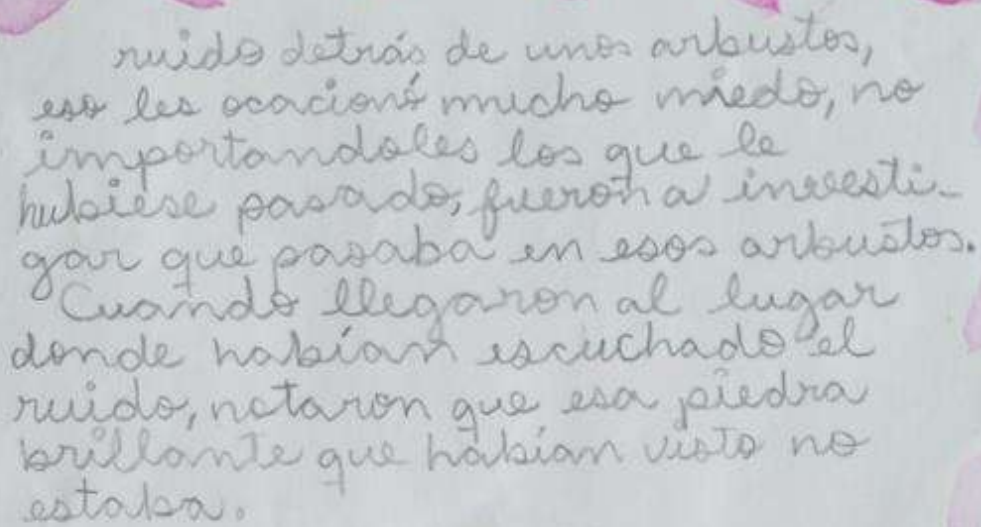 ruido detrás de unos arbustos,
eso les ocacionó mucho miedo, no
importandoles los que le
hubiese pasado, fueron a investi-
gar que pasaba en esos arbustos.
Cuando llegaron al lugar
donde habían escuchado el
ruido, notaron que esa piedra
brillante que habían visto no
estaba.